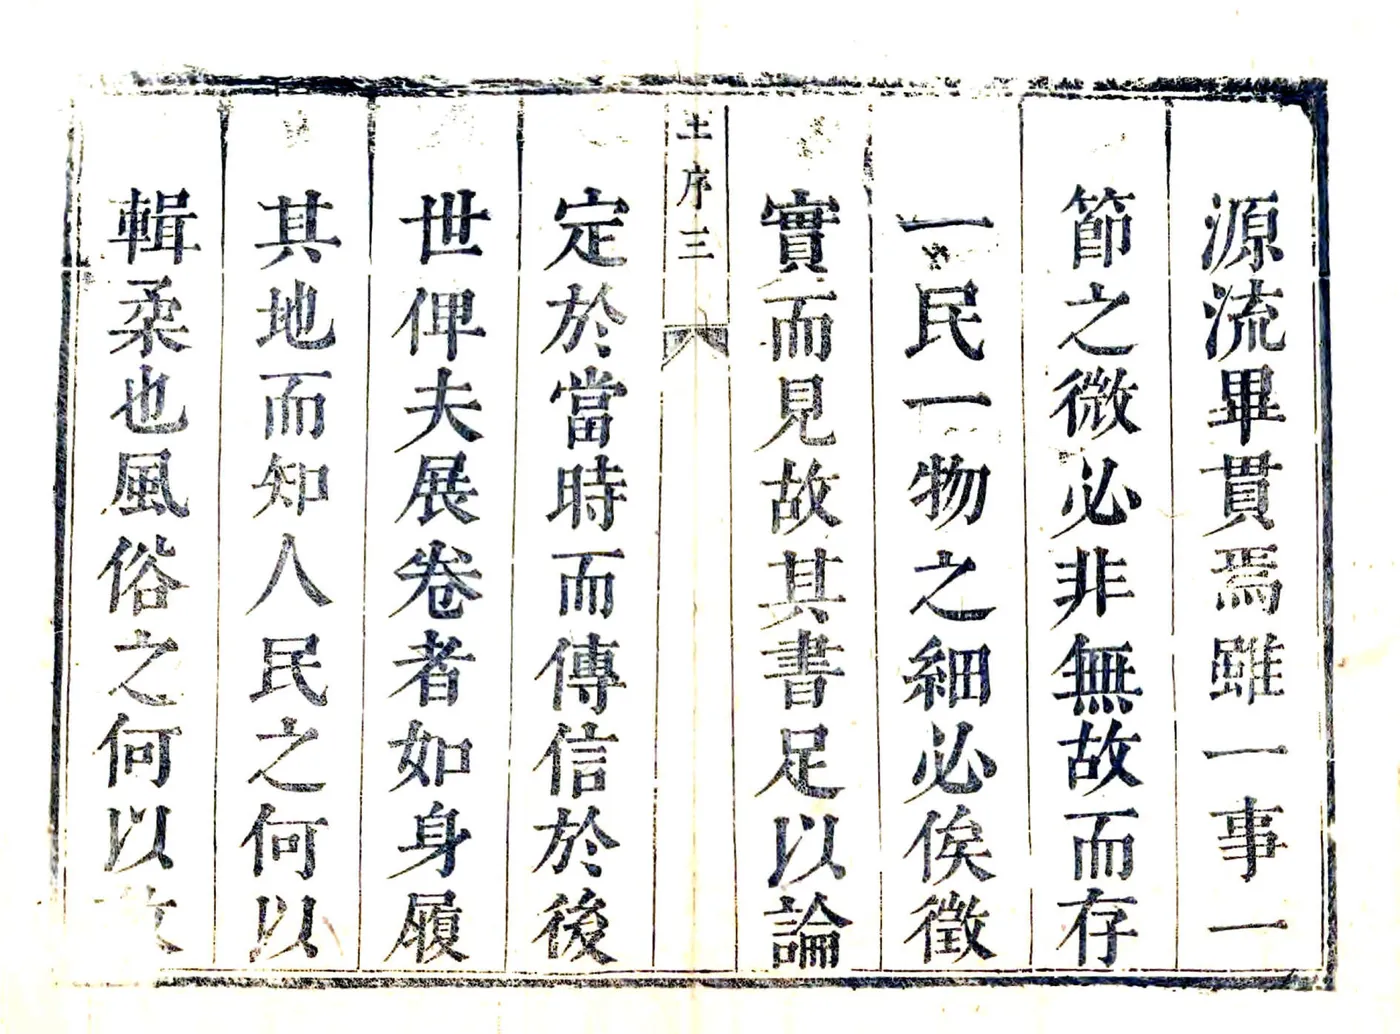 源流畢貫焉雖一事一
節之微必非無故而存
一民一物之細必俟徵
實而見故其書足以論
王序三
定於當時而傳信於後
世俾夫展卷者如身履
其地而知人民之何以
輯柔也風俗之何以